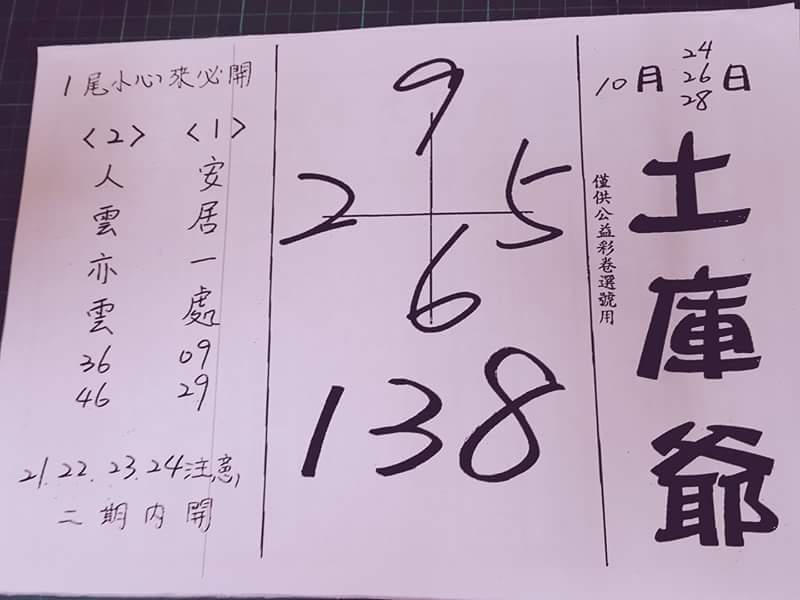 10月24 26 28日
土庫爺
僅供公益彩卷選號用
9
2 5
6
138
1尾小心來必開
<1>
安居一處
09
29
<2>
人雲亦雲
36
46
21.22.23.24注意,
二期内開